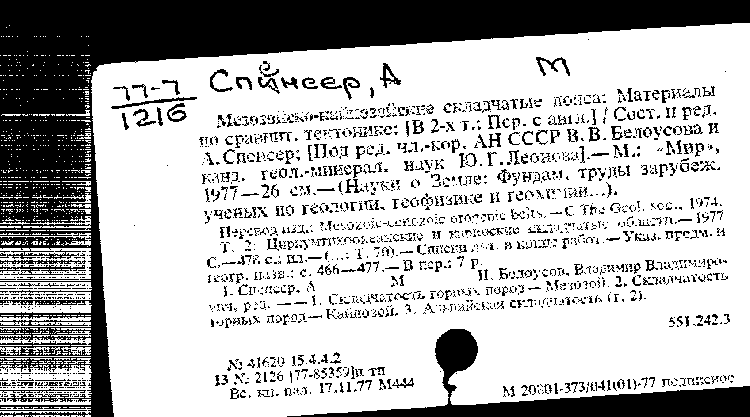 77-7 Спенсер, А М
1216
Мезозойско-кайнозойские складчатые пояса: Материалы
по сравнит. тектонике: [В 2-х т.: Пер. с англ.] / Сост. и ред.
А. Спенсер; [Под ред. чл.-кор. АН СССР В. В. Белоусова и
канд. геол.-минерал. наук Ю. Г. Леонова].— М.: «Мир»,
1977—26 см.—(Науки о Земле: Фундам. труды зарубеж.
ученых по геологии, геофизике и геохимии...).
Перевод изд.: Mesozoic-cenozoic orogenic belts.—C The Geol. soc., 1974.
Т. 2: Циркумтихоокеанские и складчатые области.—1977
С.—476 с.: ил.—(...: Т. 70).—Списки лит. в конце работ.—Указ. предм. и
геогр. назв.: с. 466—477.—В пер.: 7 р.
I. Спенсер, А М II. Белоусов, Владимир Владимиро-
вич, ред. — — 1. Складчатость горных пород—Мезозой. 2. Складчатость
горных пород—Кайнозой. 3. Альпийская складчатость (т. 2).
551.242.3
№ 41620 15.4.4.2
13 № 2126 [77-85359]п тп
Вс. кн. пал. 17.11.77 М444
М 20801-373/041(01)-77 подписное